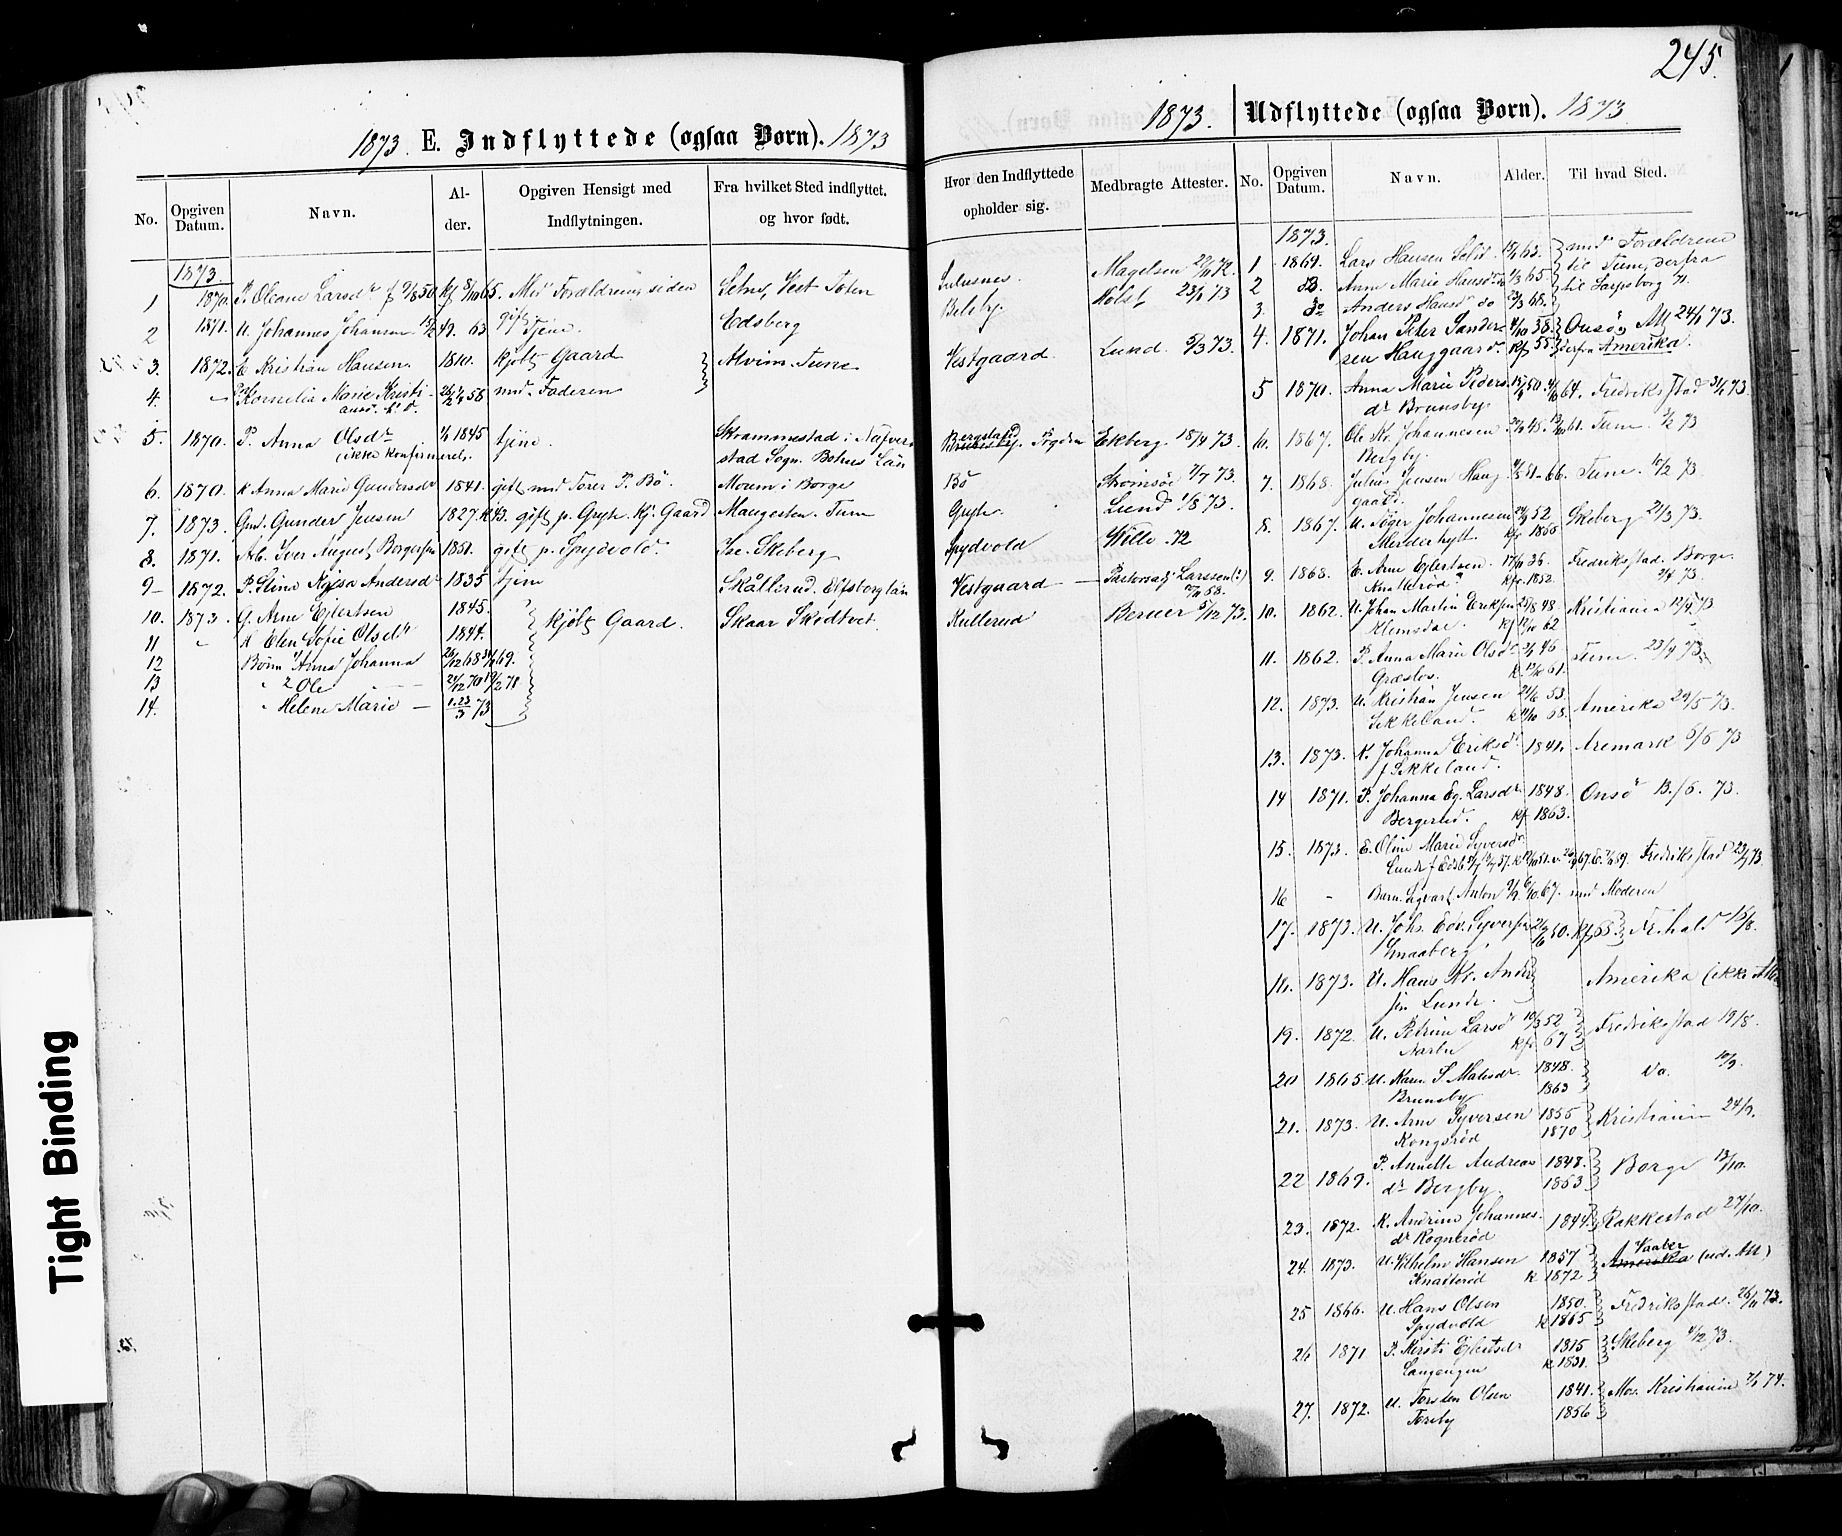 245.
1873. E. Indflyttede (ogsaa Børn). 1873
1873. Udflyttede (ogsaa Børn). 1873.
No. Opgiven Datum. Navn. Alder. Opgiven Hensigt med Indflytningen. Fra hvilket Sted indflyttet. og hvor født. Hvor den Indflyttede opholder sig. Medbragte Attester.
1873.
1 1870. P. Oleane Larsdr f 9/8 50 kf 8/10 65. Med Forældrene siden Selnes, Vest Toten Magelsen 22/11 72.
2 1871. U. Johannes Johansen 49. 63 gift tjene. Edsberg Belsby. Holst 23/1 73
3. 1872. E Kristian Hansen. 1810. kjøbt Gaard Alvim. Tune Vestgaard. Lund 5/3 73.
4. — Kornelia Marie Kristiansd. 58 med Faderen
5. 1870. P. Anna Olsdr 1845 tjene. Skrammestad i Nafverstad Sogn. Bohus Län
(ikke konfirmeret. Ekberg. 18/4 73.
6. 1870. K Anna Marie Gundersdr 1841. gift med Torer P. Bø. Moum i Borge Bø Stromsøe 7/7 73.
7. 1873. Gm. Gunder Jensen 1827. K 43. gift p. Gryte. Kj. Gaard Haugesten. Tune Gryte. Lund 1/8 73.
8. 1871. Ab. Iver August Borgersen 1851. gift p. Spydvold. Ise. Skeberg Spydvold Wille - 72
9 - 1872. P. Stina Kajsa Andersdr 1835 tjene Skållerud. Elfsborg län Vestgaard — Pastorsadj. Larssen (?)
10. 1873. G. Arne Ejlertsen 1845. kjøbt Gaard. Skaar Skjødtvet. Kullerud Berner 5/12 73.
11 " K Elen Sofie Olsdr 1844.
12 Børn 1 Anna Johanna 26/12 68 69.
13 " 2 Ole — 24/12 70 71
14. " Helene Marie — 1.23/3 73
No. Opgiven Datum. Navn. Alder. Til hvad Sted.
1873.
1 1869. Lars Hansen 63. med Forældrene
2 do. Anne Marie Hansd. do 65 til Tune, derfra
3. do Anders Hansen do 68. til Sarpsborg
4. 1871. Johan Peter Sandersen Hauggaard. 4/10 38. Kf 55. Onsø. Att 24/1 73. derfra Amerika.
5 1870. Anna Marie Pedersdr Brunsby. 50. 64. Fredriksstad 31/1 73
6. 1867. Ole Kr. Johannesen Bergby. 45. 61. Tune. 1/2 73
7. 1868. Julius Jensen Hauggaard. 51. 66. Tune. 10/2 73
8. 1867. U. Johannesen 52 kf 1868 Skeberg 21/3 73.
9. 1868. E. Arne Ejlertsen Knatterød 17/10 36. kf. 1852. Fredriksstad. Borge. 2/4 73.
10. 1862. U. Johan Martin Eriksen Klemsdal. 25/8 48 kf 12/10 62 Kristiania 12/4 73
11. 1862. P. Anna Marie Olsdr Græslos. 46 k. 12/10 61. Tune. 23/4 73
12. 1873. U. Kristian Jensen Sikkeland. 21/6 53. K 11/10 68. Amerika 24/5 73.
13. 1873. K. Johanna Eriksdr f. Sikkeland. 1841. Aremark 6/6 73
14 1871. P. Johanna Eg. Larsdr Bergerud. 1848. kf 1863. Onsø 13./6. 73.
15. 1873. E. Oline Marie Syversdr Lund Fredriksstad 23/7 73.
16 - Barn Sigvart Anton 67. med Moderen
17. 1873. U. Johs. Edv. Syversen Smaaberg 50. kf 65. Fr.hald 15/8.
18. 1873. U. Hans Kr. Andersen Lunde. Amerika (ikke Att
19. 1872. U. Petrine Larsd 10/3 52 kf 67 Fredriksstad 19/8.
20 1865. U. Karen S Matisdr. Brunsby 1848. 1863 Do. 10/9.
21. 1873. U. Arne Syversen Kongsrød 1855 1870 Kristiania 24/9.
22 1869. P. Annette Andreasdr Bergby. 1848. 1863 Borge 13/10.
23. 1872. K. Andrine Johannesdr Kognerød 1844. Rakkestad 27/10.
24. 1873. U. Vilhelm Hansen Knatterød 1857 K 1872. Vaaler Amerika (ud. Att)
25 1866. U. Hans Olsen Spydvold 1850. K 1865 Fredriksstad. 26/11 73.
26 1871 P. Kirsti Ejlertsdr Langengen 1815 K 1831. Skeberg 4/12 73.
27. 1872. U. Torsten Olsen Torsby 1841. 1856 Kristiania 7/1 74.
Tight Binding